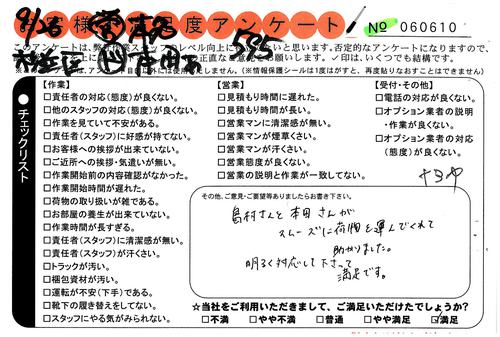 9/26
お客様満足度アンケート
No 060610
このアンケートは、弊社作業スタッフのレベル向上に
と思います。否定的なアンケートになりますので、
正直な
お願いします。✓印は、いくつでも結構です。
(※情報保護シールは1度はがすと、再度貼りなおすことはできません)
●チェックリスト
【作業】
□責任者の対応(態度)が良くない。
□他のスタッフの対応(態度)が良くない。
□作業を見ていて不安がある。
□責任者(スタッフ)に好感が持てない。
□お客様への挨拶が出来ていない。
□ご近所への挨拶・気遣いが無い。
□作業開始前の内容確認がなかった。
□作業開始時間が遅れた。
□荷物の取り扱いが雑である。
□お部屋の養生が出来ていない。
□作業時間が長すぎる。
□責任者(スタッフ)に清潔感が無い。
□責任者(スタッフ)が汗くさい。
□トラックが汚い。
□梱包資材が汚い。
□運転が不安(下手)である。
□靴下の履き替えをしてない。
□スタッフにやる気がみられない。
【営業】
□見積もり時間に遅れた。
□見積もり時間が長い。
□営業マンに清潔感が無い。
□営業マンが煙草くさい。
□営業マンが汗くさい。
□営業態度が良くない。
□営業の説明と作業が一致してない。
【受付・その他】
□電話の対応が良くない。
□オプション業者の説明
・作業が良くない。
□オプション業者の対応
(態度)が良くない。
その他、ご意見・ご要望等ありましたらお書き下さい。
島村さんと本田さんが
スムーズに荷物を運んでくれて
助かりました。
明るく対応して下さって
満足です。
☆当社をご利用いただきまして、ご満足いただけたでしょうか?
□不満 □やや不満 □普通 □やや満足 ☑満足